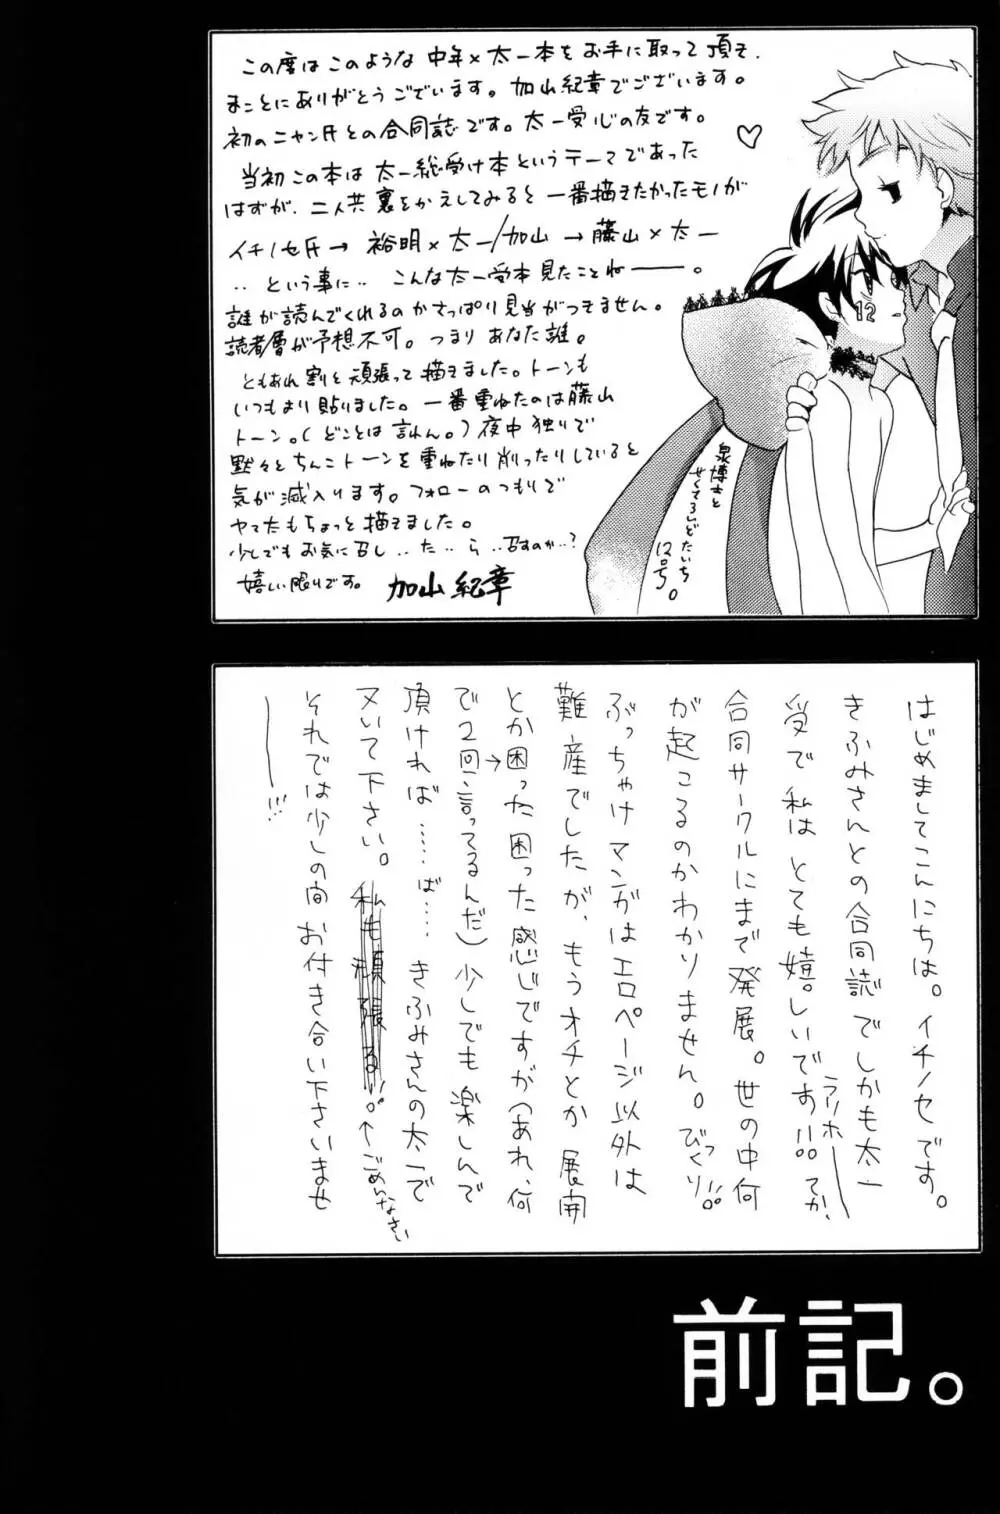 この度はこのような 中年×太一本を お手に取って頂き、
まことにありがとうございます。加山紀章でございます。
初のニャン氏との合同誌です。太一受 心の友です。
当初この本は 太一総受け本というテーマであった
はずが、二人共裏をかえしてみると 一番描きたかったモノが
イチノセ氏→ 裕明×太一/加山→ 藤山×太一
‥という事に‥ こんな太一受本見たことねー。
誰が読んでくれるのかさっぱり見当がつきません。
読者層が予想不可。つまり あなた誰。
ともあれ割と頑張って描きました。トーンも
いつもより貼りました。一番重ねたのは藤山
トーン。(どことは言わん。)夜中 独りで
黙々とちんこトーンを重ねたり削ったりしていると
気が滅入ります。フォローのつもりで
ヤマたもちょっと描きました。
少しでもお気に召し‥た‥ら‥召すのか‥?
嬉しい限りです。 加山 紀章
12
泉博士と
せくてろいどたいち
12ごう。
はじめましてこんにちは。イチノセです。
きふみさんとの合同誌でしかも太一
受で私はとても嬉しいです!! てか、
ラリホー
合同サークルにまで発展。世の中何
が起こるのかわかりません。びっくり!!
ぶっちゃけマンガはエロページ以外は
難産でしたが、もうオチとか展開
とか困った困った感じですが(あれ、何
で2回言ってるんだ)少しでも楽しんで
頂ければ……ば…… きふみさんの太一で
ヌいて下さい。私も頑張る!!。←ごめんなさい
それでは少しの間お付き合い下さいませ
ー!!!
前記。